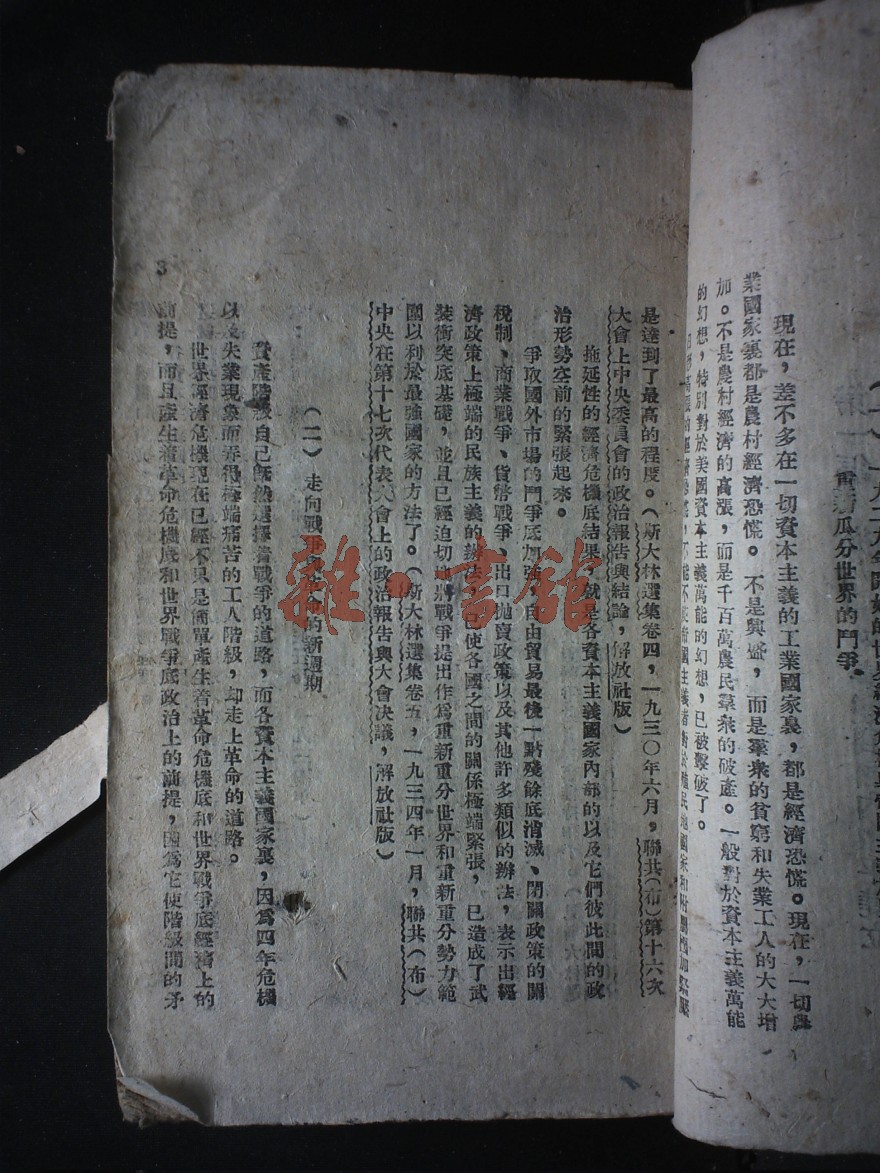 重新瓜分世界的鬥爭
現在，差不多在一切資本主義的工業國家裏，都是經濟恐慌。現在，一切農
業國家裏都是農村經濟恐慌。不是興盛，而是羣衆的貧窮和失業工人的大大增
加。不是農村經濟的高漲，而是千百萬農民羣衆的破產。一般對於資本主義萬能
的幻想，特別對於美國資本主義萬能的幻想，已被擊破了。
是達到了最高的程度。（斯大林選集卷四，一九三〇年六月，聯共（布）第十六次
大會上中央委員會的政治報告與結論，解放社版）
拖延性的經濟危機底結果，就是各資本主義國家內部的以及它們彼此間的政
治形勢空前的緊張起來。
爭取國外市場的鬥爭底加強，自由貿易最後一點殘餘底消滅、閉關政策的關
稅制、商業戰爭、貨幣戰爭、出口拋賣政策以及其他許多類似的辦法，表示出經
濟政策上極端的民族主義的辦法，已使各國之間的關係極端緊張，已造成了武
裝衝突底基礎，並且已經迫切地將戰爭提出作爲重新重分世界和重新重分勢力範
圍以利於最強國家的方法了。（斯大林選集卷五，一九三四年一月，聯共（布）
中央在第十七次代表大會上的政治報告與大會決議，解放社版）
（二）走向戰爭與革命的新週期
資產階級自己既然選擇着戰爭的道路，而各資本主義國家裏，因爲四年危機
以及失業現象而弄得極端痛苦的工人階級，却走上革命的道路。
世界經濟危機現在已經不只是簡單產生着革命危機底和世界戰爭底經濟上的
前提，而且產生着革命危機底和世界戰爭底政治上的前提，因爲它使階級間的矛
3
雜·書館